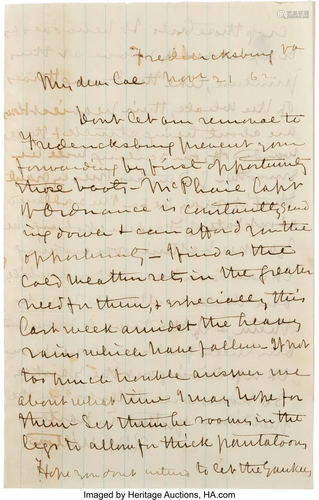 Fredericksburg Va
My dear Col Nov 21 62
Dont let our removal to
Fredericksburg prevent your
forwarding by first opportunity
those boots - McPhail Capt
of Ordnance is constantly send
ing down & can afford you the
opportunity - I find as the
cold weather sets in the greater
need for them, & especially this
last week amidst the heavy
rains which have fallen. If not
too much trouble answer me
about what time I may hope for
them - Let them be rooms in the
legs to allow for thick pantaloons
Hope you dont intend to let the Yankees
Imaged by Heritage Auctions, HA.com